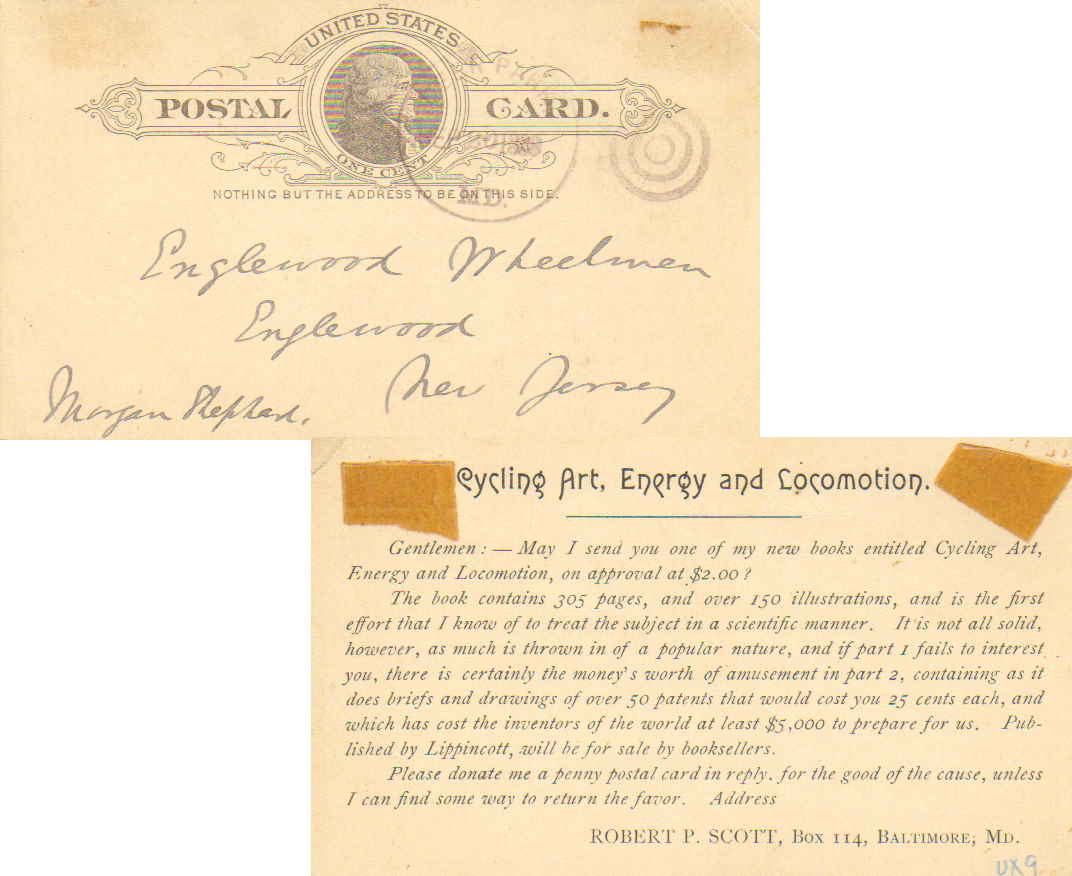 UNITED STATES
POSTAL CARD.
ONE CENT
NOTHING BUT THE ADDRESS TO BE ON THIS SIDE.
MD.
Englewood Wheelmen
Englewood
New Jersey
Morgan Shephard.
Cycling Art, Energy and Locomotion.
Gentlemen: — May I send you one of my new books entitled Cycling Art,
Energy and Locomotion, on approval at $2.00?
The book contains 305 pages, and over 150 illustrations, and is the first
effort that I know of to treat the subject in a scientific manner. It is not all solid,
however, as much is thrown in of a popular nature, and if part 1 fails to interest
you, there is certainly the money's worth of amusement in part 2, containing as it
does briefs and drawings of over 50 patents that would cost you 25 cents each, and
which has cost the inventors of the world at least $5,000 to prepare for us. Pub-
lished by Lippincott, will be for sale by booksellers.
Please donate me a penny postal card in reply. for the good of the cause, unless
I can find some way to return the favor. Address
ROBERT P. SCOTT, Box 114, BALTIMORE, MD.
UX9